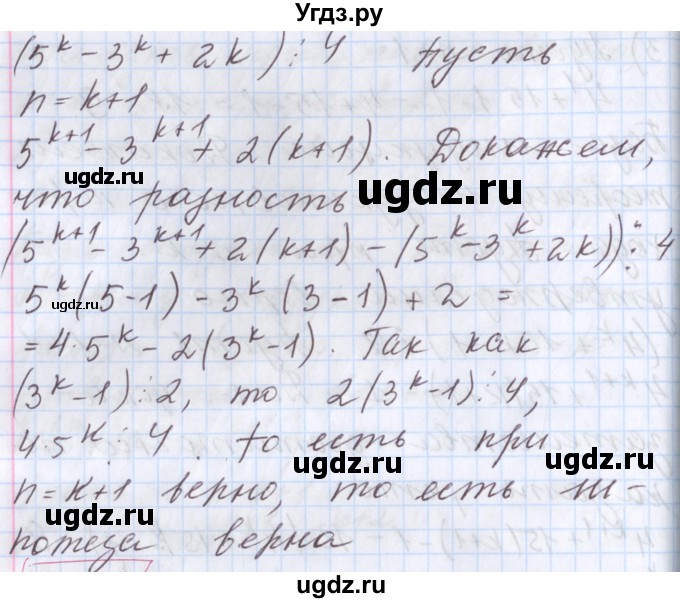 Угдз.ру
(5^k - 3^k + 2k) ⋮ 4 Пусть
n = k+1
5^{k+1} - 3^{k+1} + 2(k+1). Докажем,
что разность
(5^{k+1} - 3^{k+1} + 2(k+1) - (5^k - 3^k + 2k)) ⋮ 4
5^k(5-1) - 3^k(3-1) + 2 =
= 4·5^k - 2(3^k - 1). Так как
(3^k - 1) ⋮ 2, то 2(3^k - 1) ⋮ 4,
4·5^k ⋮ 4. то есть при
n = k+1 верно, то есть ги-
потеза верна
ugdz.ru
ugdz.ru
ugdz.ru
ugdz.ru
ugdz.ru
ugdz.ru
ugdz.ru
ugdz.ru
ugdz.ru
ugdz.ru